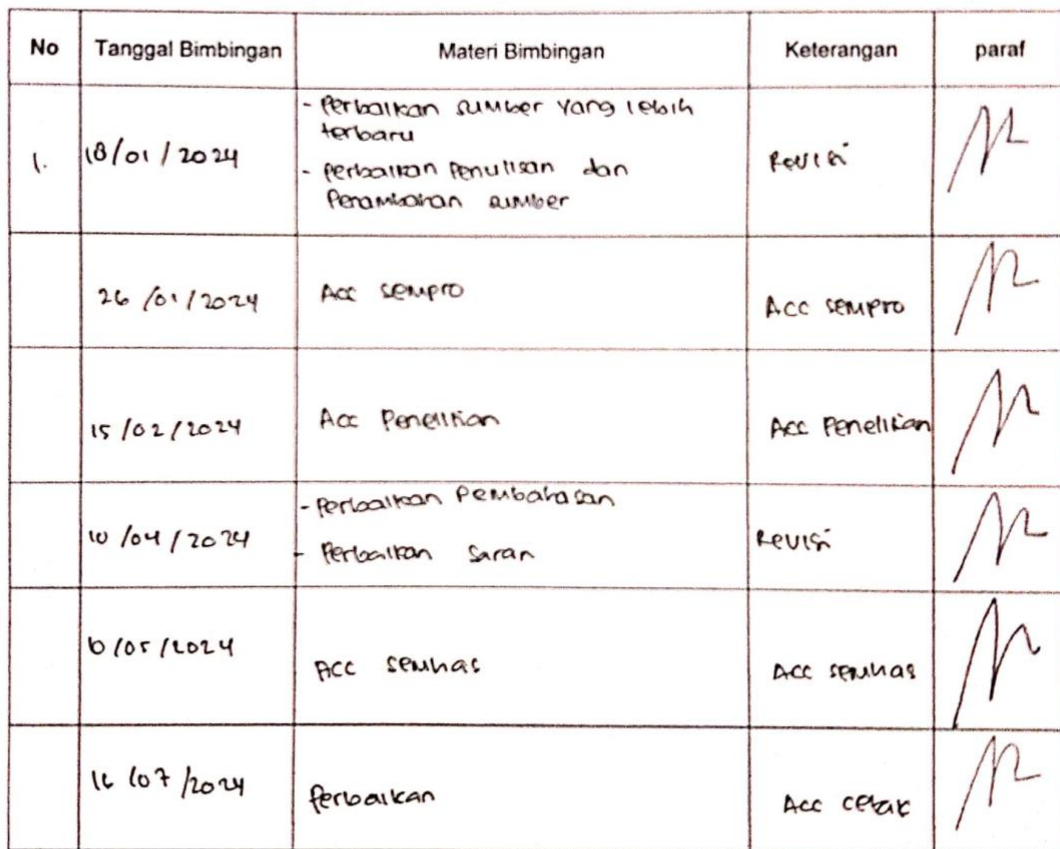 No Tanggal Bimbingan Materi Bimbingan Keterangan paraf
1. 18/01/2024 - Perbaikan sumber yang lebih Revisi
terbaru
- Perbaikan Penulisan dan
Penambahan sumber
26/01/2024 Acc sempro Acc sempro
15/02/2024 Acc Penelitian Acc Penelitian
10/04/2024 - Perbaikan Pembahasan Revisi
- Perbaikan Saran
/05/2024 Acc semhas Acc semhas
/07/2024 Perbaikan Acc cetak